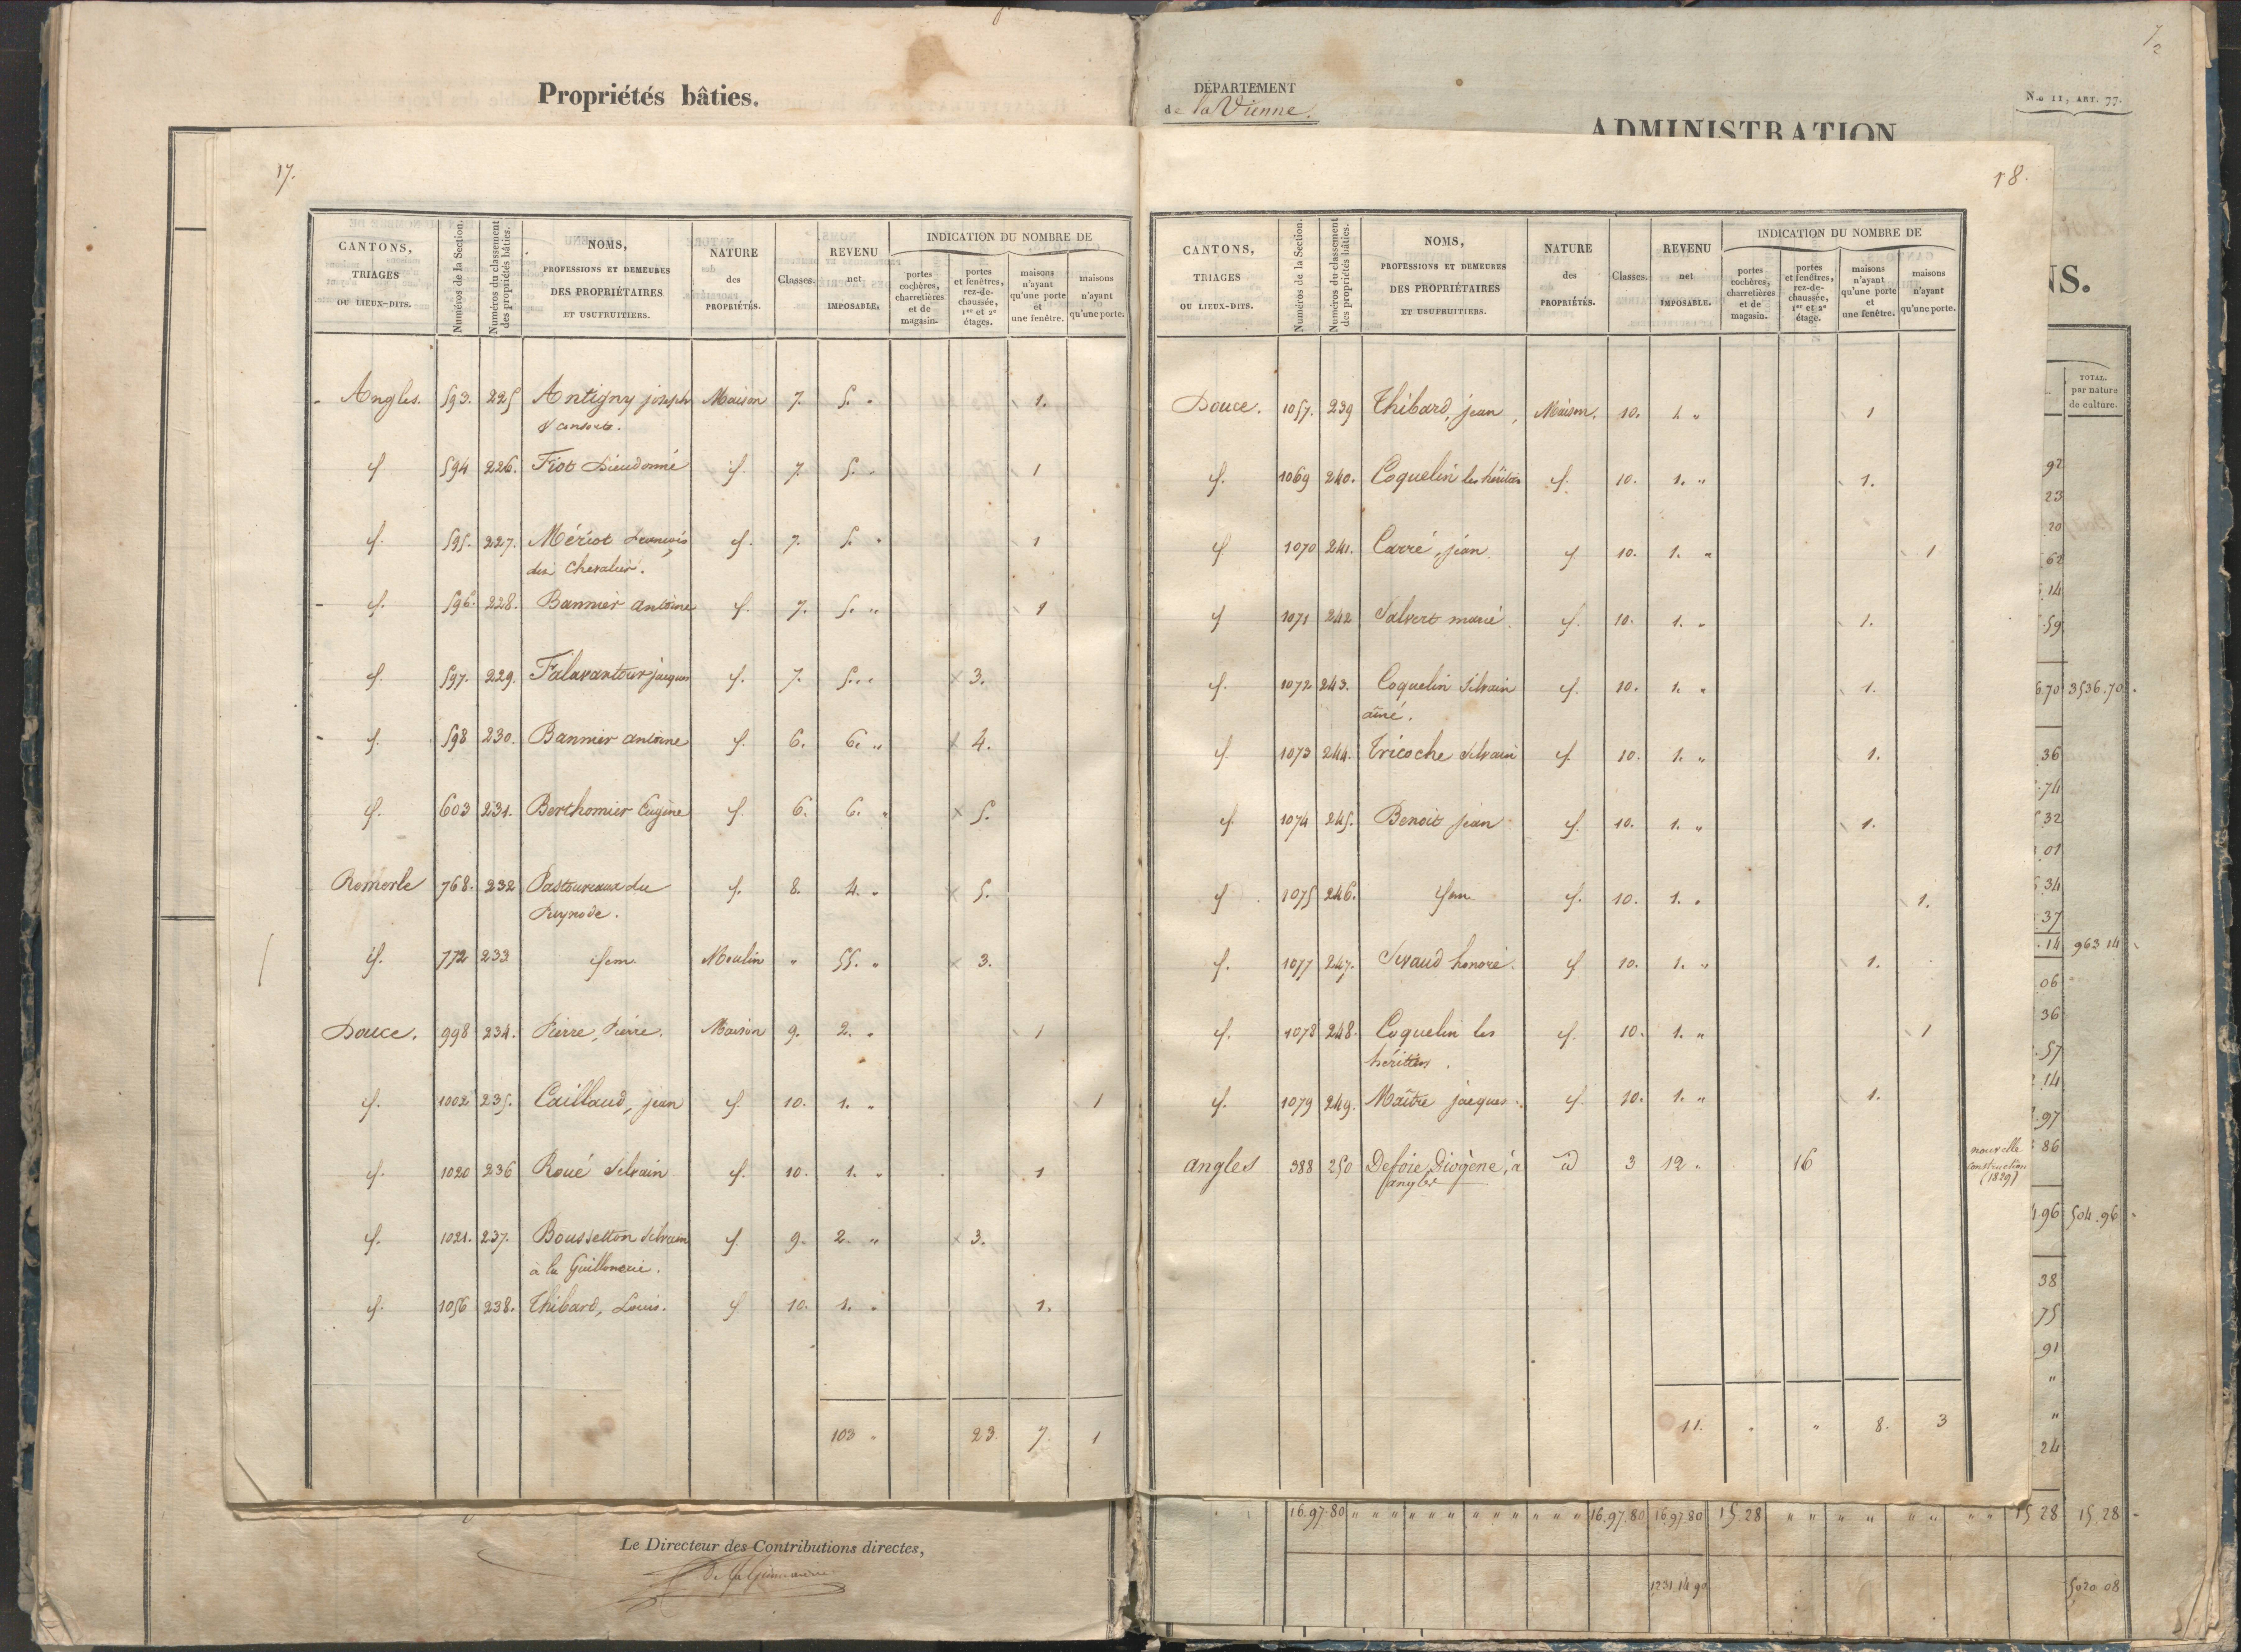 Propriétés bâties.
17.
CANTONS, TRIAGES OU LIEUX-DITS. Numéros de la Section. Numéros du classement des propriétés bâties. NOMS, PROFESSIONS ET DEMEURES DES PROPRIÉTAIRES ET USUFRUITIERS. NATURE des PROPRIÉTÉS. Classes. REVENU net IMPOSABLE. INDICATION DU NOMBRE DE portes cochères, charretières et de magasin. portes et fenêtres, rez-de-chaussée, 1er et 2e étages. maisons n'ayant qu'une porte et une fenêtre. maisons n'ayant qu'une porte.
Angles. 593. 225 Antigny joseph Maison 7. 5. " 1.
& consorts.
if 594 226. Fiot Dieudonné if. 7. 5. " 1
if. 595. 227. Mériot if. 7. 5. " 1
dit Chevalier.
if. 596. 228. Banmier antoine if. 7. 5. " 1
if. 597. 229. Falavantour jacques if. 7. 5. " 3.
if. 598 230. Banmier antoine if. 6. 6. " 4.
if. 603 231. Berthomier Eugène if. 6. 6. " 5.
Remerle 768. 232 Pastoureaux du if. 8. 4. " 5.
Puynode.
if. 772 233 ifem Moulin " 55. " 3.
Douce. 998 234. Pierre, Pierre. Maison 9. 2. " 1
if. 1002 235. Caillaud, jean if. 10. 1. " 1
if. 1020 236 Roué Silvain if. 10. 1. " 1
if. 1021. 237. Boussetton Silvain if. 9. 2. " 3.
à la Guillonerie.
if. 1056 238. Thibard, Louis. if 10. 1. " 1.
103 " 23. 7. 1
Le Directeur des Contributions directes,
DÉPARTEMENT
de la Vienne.
N.o 11, ART. 77.
ADMINISTRATION
18.
CANTONS, TRIAGES OU LIEUX-DITS. Numéros de la Section. Numéros du classement des propriétés bâties. NOMS, PROFESSIONS ET DEMEURES DES PROPRIÉTAIRES ET USUFRUITIERS. NATURE des PROPRIÉTÉS. Classes. REVENU net IMPOSABLE. INDICATION DU NOMBRE DE portes cochères, charretières et de magasin. portes et fenêtres, rez-de-chaussée, 1er et 2e étage. maisons n'ayant qu'une porte et une fenêtre. maisons n'ayant qu'une porte.
Douce. 1057. 239 Thibard, jean, Maison. 10. 1. " 1
if. 1069 240. Coquelin les héritiers if. 10. 1. " 1.
if 1070 241. Carré, jean if 10. 1. " 1
if 1071 242 Salvert marie. if. 10. 1. " 1.
if. 1072 243. Coquelin Silvain if. 10. 1. " 1.
aîné.
if. 1073 244. Tricoche Silvain if. 10. 1. " 1.
if. 1074 245. Benoit jean if. 10. 1. " 1.
if 1075 246. ifem if. 10. 1. " 1.
if. 1077 247. honoré. if 10. 1. " 1.
if. 1078 248. Coquelin les if. 10. 1. " 1
héritiers.
if. 1079 249. Maître jacques if. 10. 1. " 1.
angles 388 250 Defoie, Diogène, à id 3 12 " 16 nouvelle construction (1829)
angles
11. " " 8. 3
NS.
TOTAL. par nature de culture.
92
23
20
62
14
59
6.70 3536.70
36
74
32
01
34
37
14 963 14
06
36
57
14
97
86
96 504.96
38
75
91
"
"
24
16.97.80 16.97.80 16.97.80 15.28 15 28 15.28
1231 14 90 5020 08